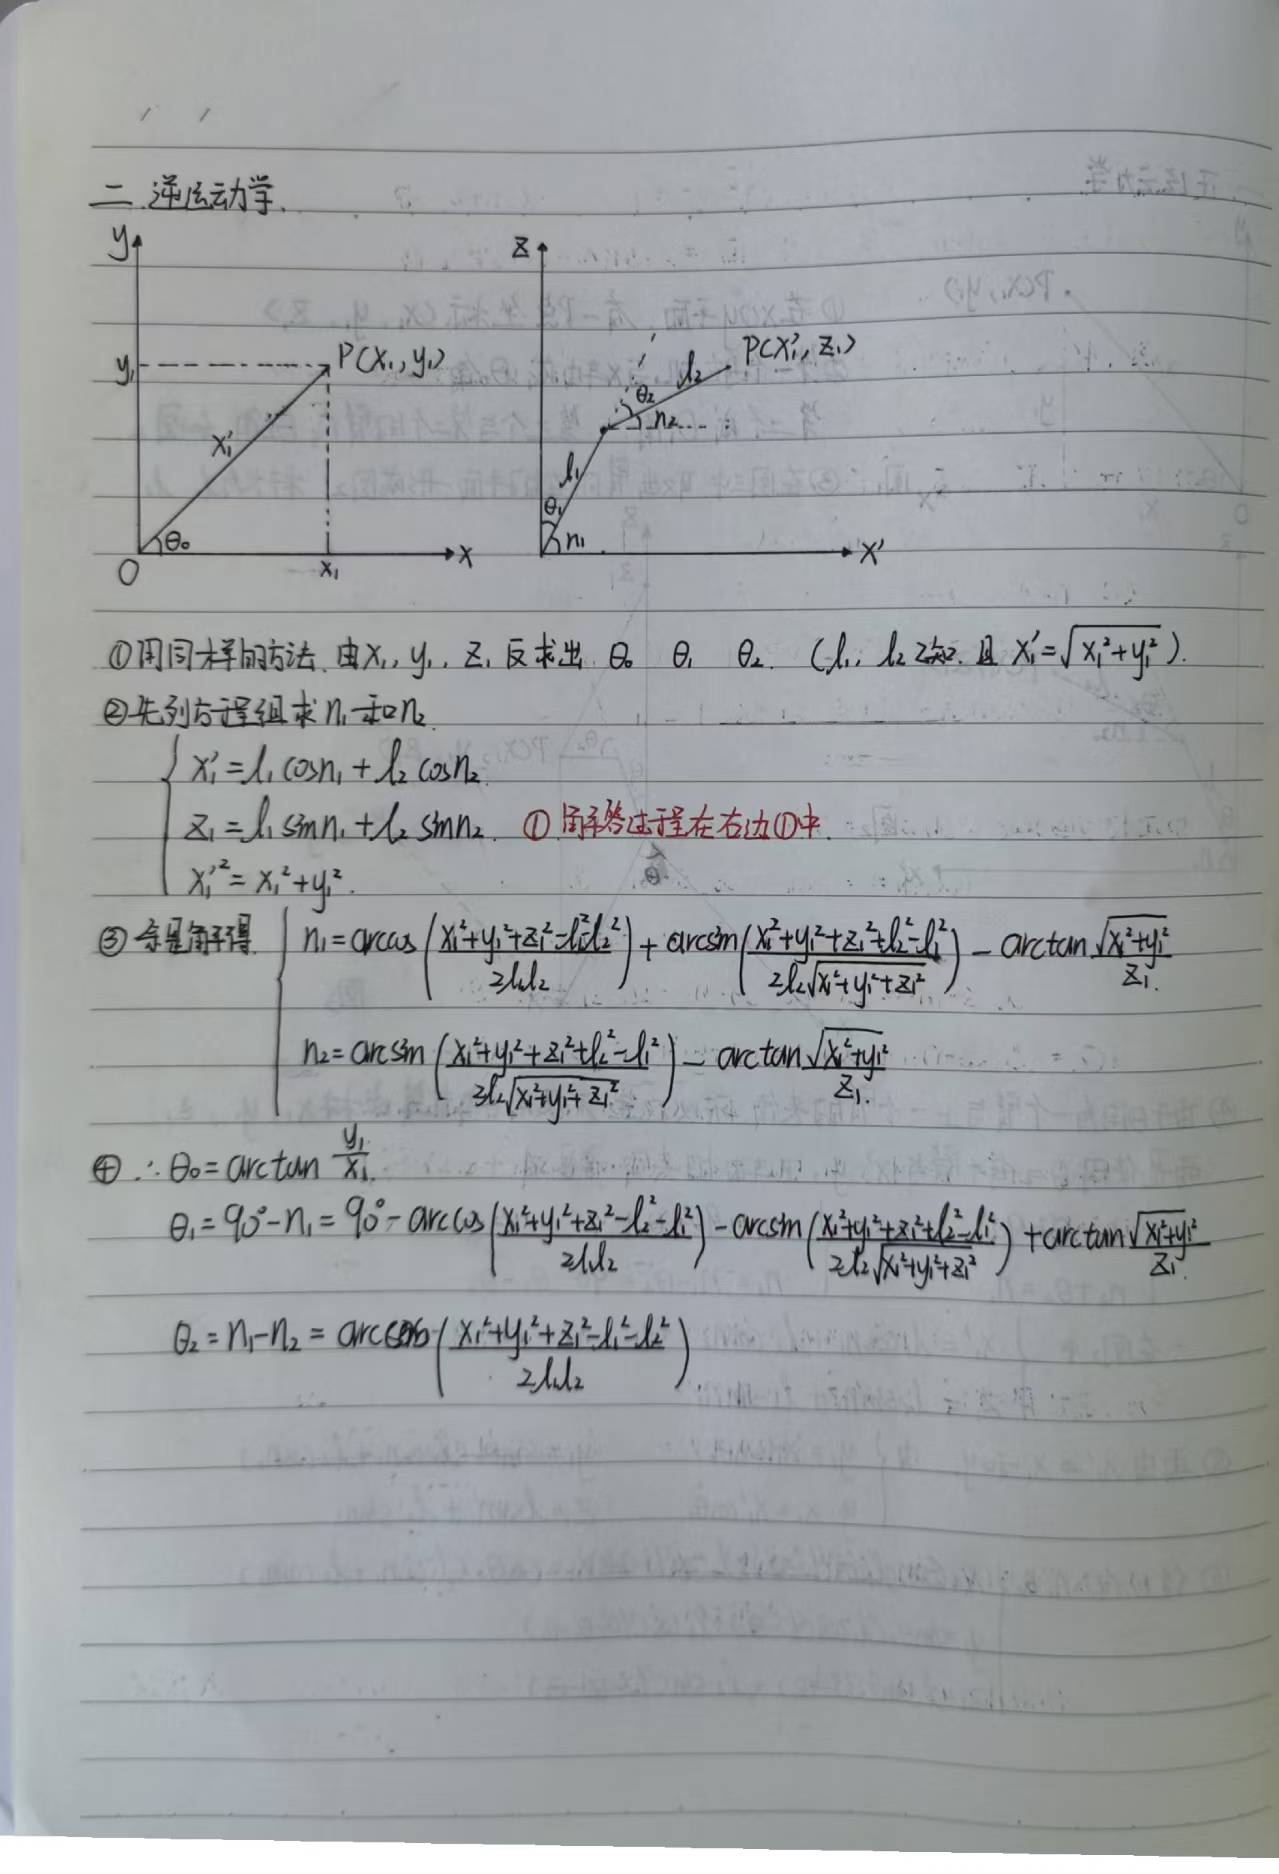 二 逆运动学.
y
y₁
P(x₁, y₁)
x₁'
θ₀
O
x₁
x
z
P(x₁', z₁)
l₂
θ₂
n₂
l₁
θ₁
n₁
x'
①用同样的方法. 由x₁, y₁, z₁ 反求出 θ₀ θ₁ θ₂. (l₁, l₂已知. 且 x₁'=√(x₁²+y₁²)).
②先列方程组求n₁和n₂.
x₁'=l₁cosn₁+l₂cosn₂.
z₁=l₁sinn₁+l₂sinn₂. ①解答过程在右边①中.
x₁'²=x₁²+y₁².
③ 解得. n₁=arccos((x₁²+y₁²+z₁²-l₁²-l₂²)/(2l₁l₂))+arcsin((x₁²+y₁²+z₁²+l₂²-l₁²)/(2l₂√(x₁²+y₁²+z₁²)))-arctan(√(x₁²+y₁²)/z₁).
n₂=arcsin((x₁²+y₁²+z₁²+l₂²-l₁²)/(2l₂√(x₁²+y₁²+z₁²)))-arctan(√(x₁²+y₁²)/z₁).
④ ∴θ₀=arctan(y₁/x₁).
θ₁=90°-n₁=90°-arccos((x₁²+y₁²+z₁²-l₂²-l₁²)/(2l₁l₂))-arcsin((x₁²+y₁²+z₁²+l₂²-l₁²)/(2l₂√(x₁²+y₁²+z₁²)))+arctan(√(x₁²+y₁²)/z₁).
θ₂=n₁-n₂=arccos((x₁²+y₁²+z₁²-l₁²-l₂²)/(2l₁l₂))